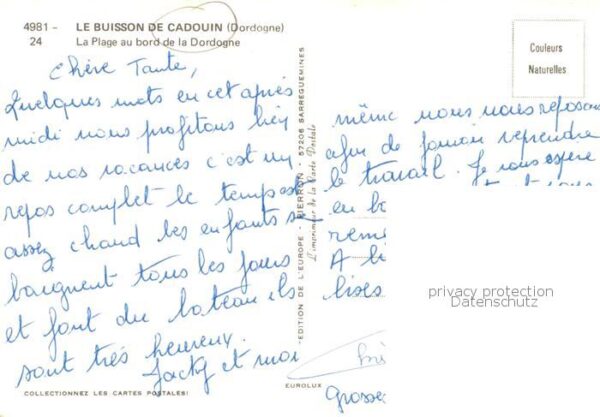 4981 - LE BUISSON DE CADOUIN (Dordogne)
24 La Plage au bord de la Dordogne
Couleurs
Naturelles
Chère Tante,
Quelques mots en cet après
midi nous profitons bien
de nos vacances c'est un
repos complet le temps est
assez chaud les enfants se
baignent tous les jours
et font du bateau ils
sont très heureux.
Jacky et moi
COLLECTIONNEZ LES CARTES POSTALES!
EDITION DE L'EUROPE - PIERRON - 57206 SARREGUEMINES
L'imprimeur de la Carte Postale
EUROLUX
même nous nous reposons
afin de pouvoir reprendre
le travail. Je vous espère
en bo
reme
A bi
bises
Grosse
privacy protection
Datenschutz